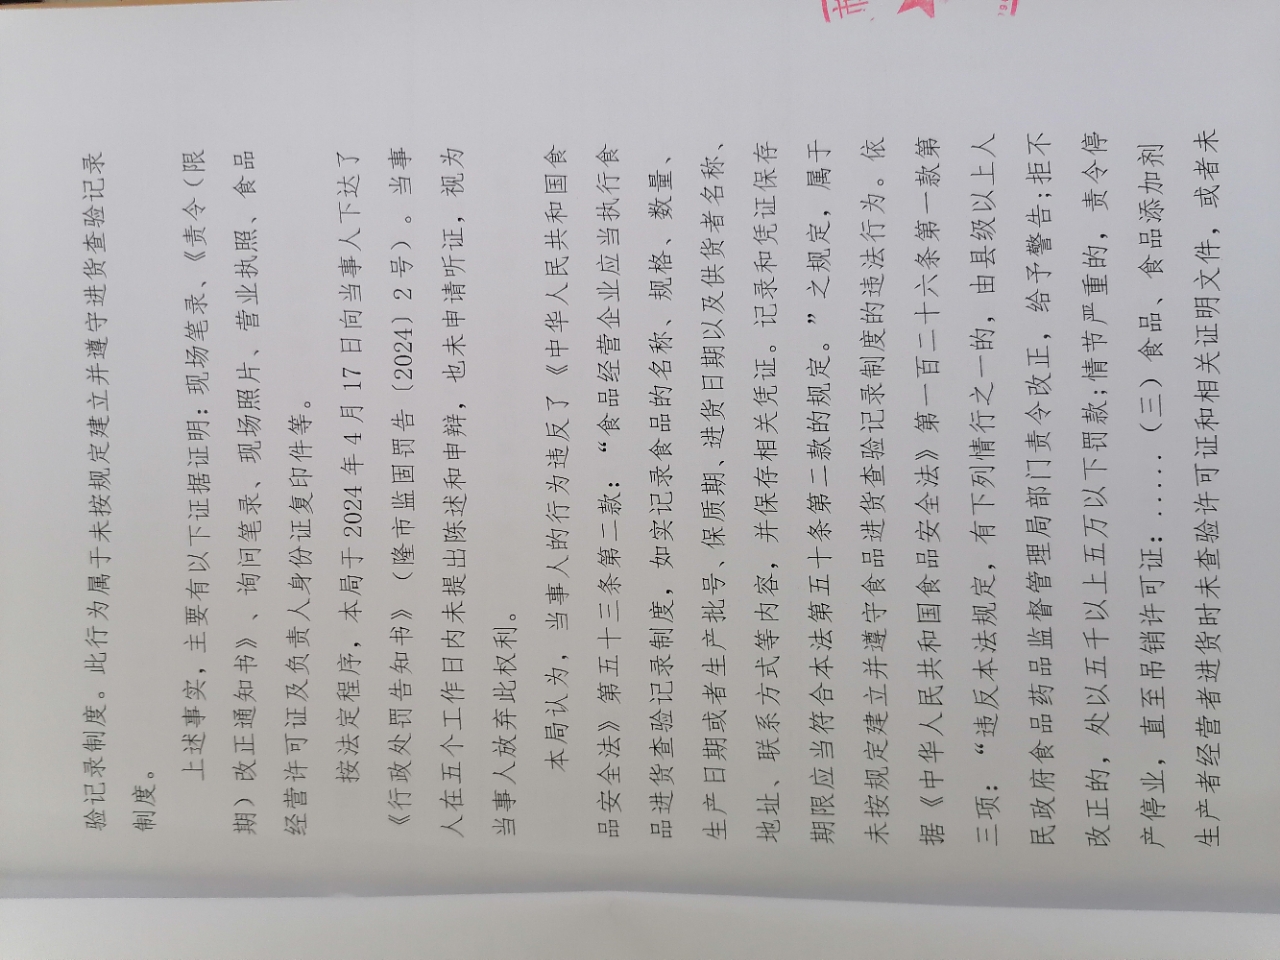 验记录制度。此行为属于未按规定建立并遵守进货查验记录
制度。
上述事实，主要有以下证据证明：现场笔录、《责令（限
期）改正通知书》、询问笔录、现场照片、营业执照、食品
经营许可证及负责人身份证复印件等。
按法定程序，本局于 2024 年 4 月 17 日向当事人下达了
《行政处罚告知书》（隆市监固罚告〔2024〕2 号）。当事
人在五个工作日内未提出陈述和申辩，也未申请听证，视为
当事人放弃此权利。
本局认为，当事人的行为违反了《中华人民共和国食
品安全法》第五十三条第二款：“食品经营企业应当执行食
品进货查验记录制度，如实记录食品的名称、规格、数量、
生产日期或者生产批号、保质期、进货日期以及供货者名称、
地址、联系方式等内容，并保存相关凭证。记录和凭证保存
期限应当符合本法第五十条第二款的规定。”之规定，属于
未按规定建立并遵守食品进货查验记录制度的违法行为。依
据《中华人民共和国食品安全法》第一百二十六条第一款第
三项：“违反本法规定，有下列情行之一的，由县级以上人
民政府食品药品监督管理局部门责令改正，给予警告；拒不
改正的，处以五千以上五万以下罚款；情节严重的，责令停
产停业，直至吊销许可证：……（三）食品、食品添加剂
生产者经营者进货时未查验许可证和相关证明文件，或者未
市